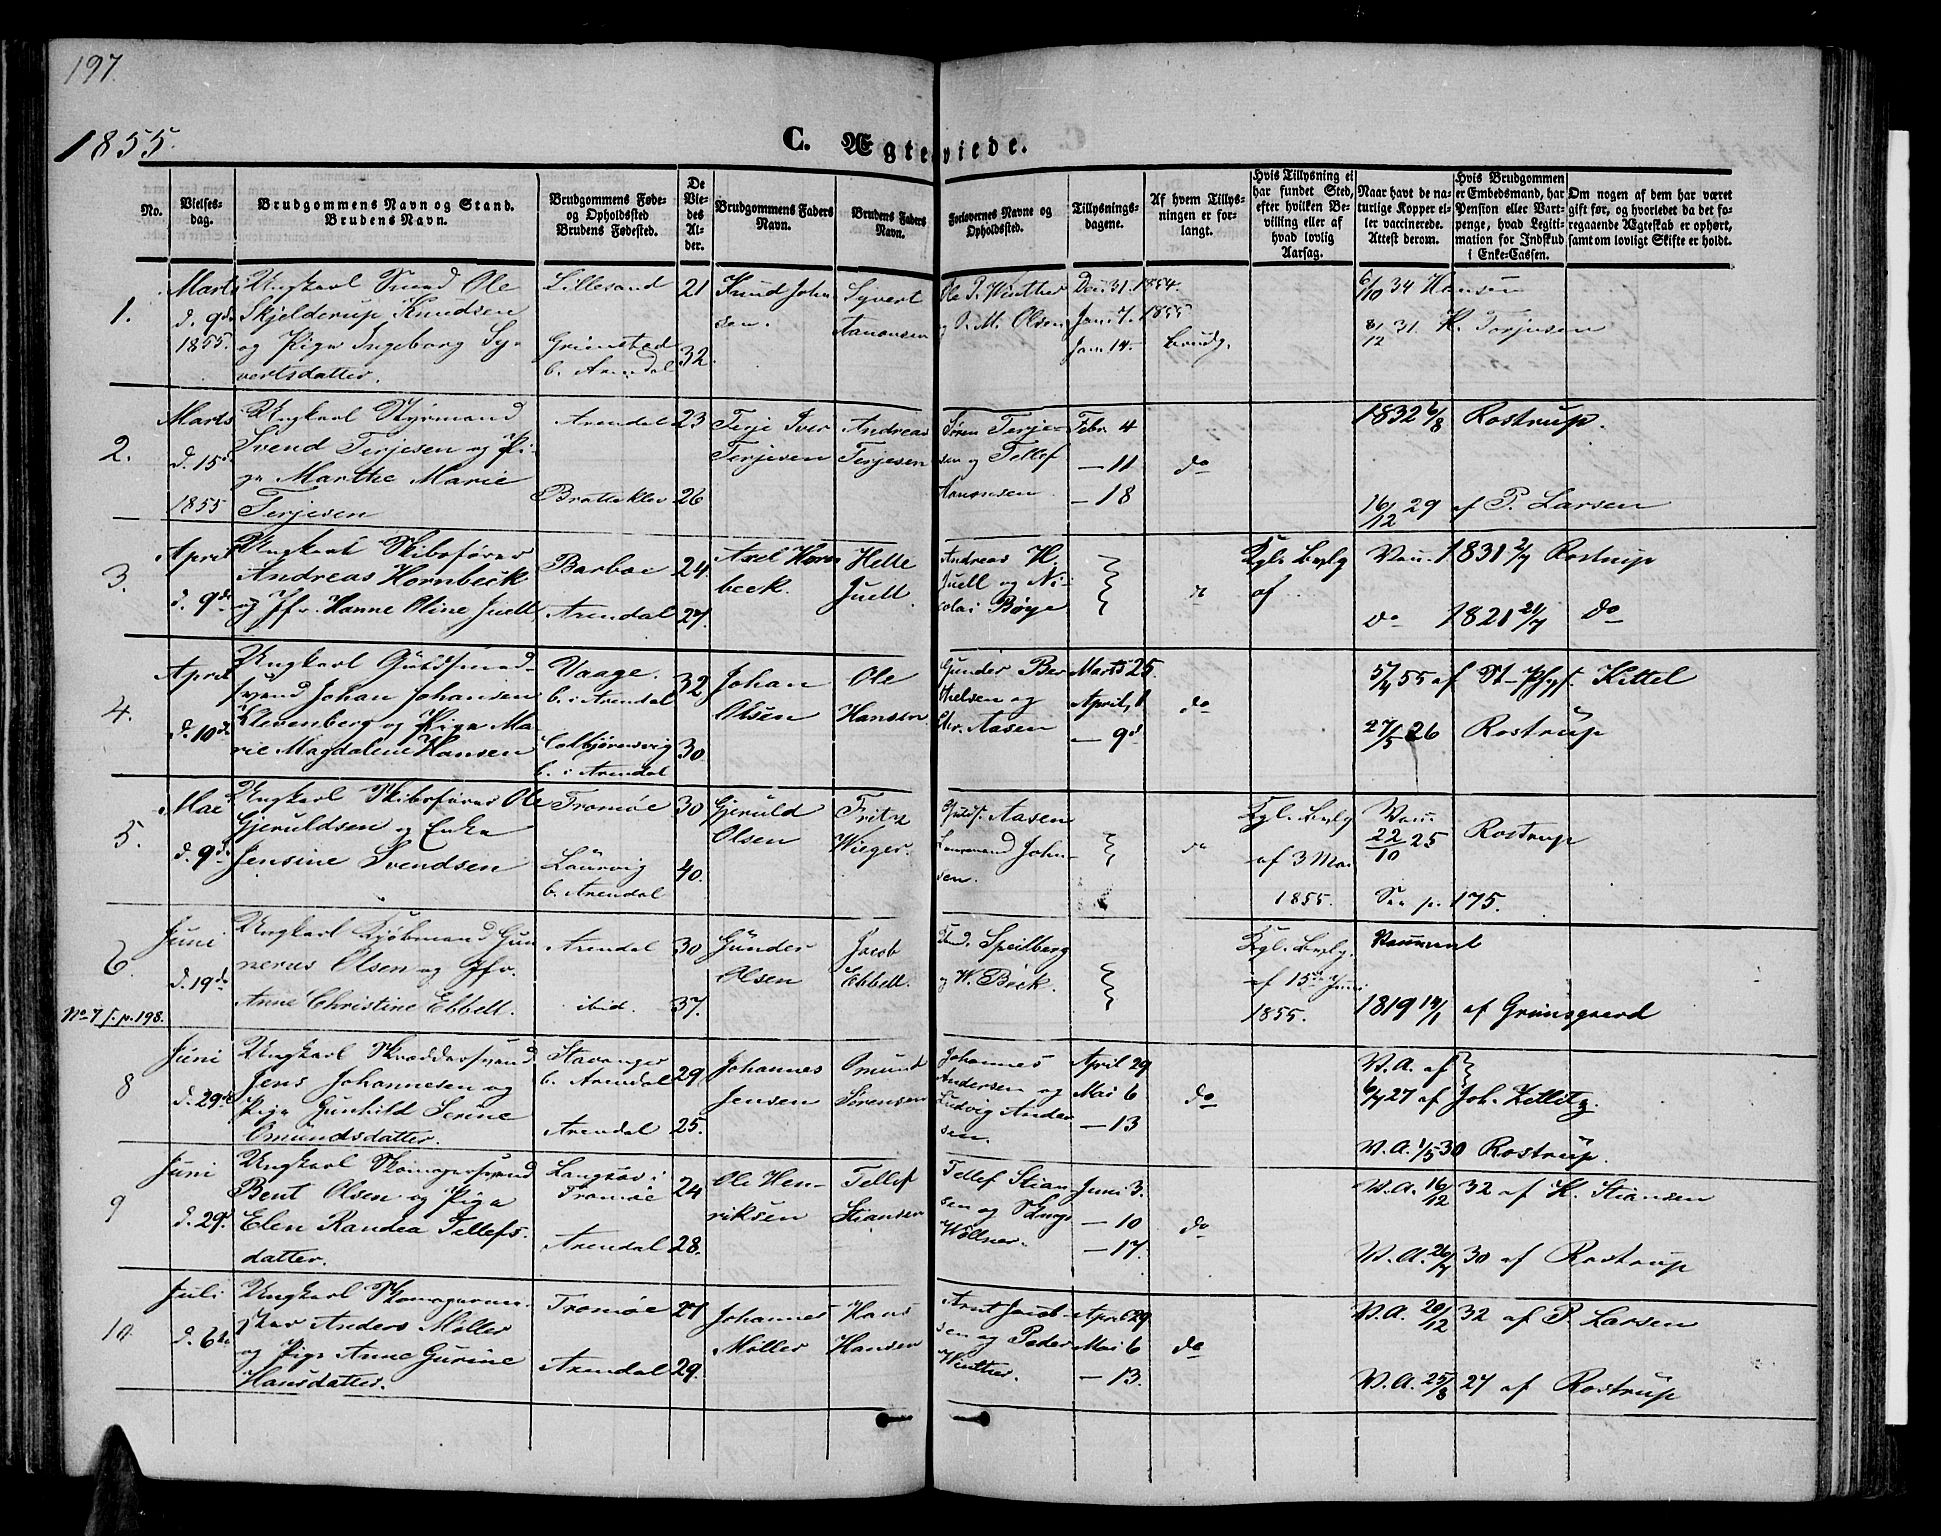 197.
1855.
C. Ægteviede.
No.
Vielses-
dag.
Brudgommens Navn og Stand.
Brudens Navn.
Brudgommens Føde-
og Opholdsted
Brudens Fødested.
De
Vie-
des
Al-
der.
Brudgommens Faders
Navn.
Brudens Faders
Navn.
Forlovernes Navne og
Opholdssted.
Tillysnings-
dagene.
Af hvem Tillys-
ningen er for-
langt.
Hvis Tillysning ei
har fundet Sted,
efter hvilken Be-
villing eller af
hvad lovlig
Aarsag.
Naar havt de na-
turlige Kopper el-
ler vaccinerede.
Attest derom.
Hvis Brudgommen
er Embedsmand, har
Pension eller Vart-
penge, hvad Legiti-
mation for Indskud
i Enke-Cassen.
Om nogen af dem har været
gift før, og hvorledet da det fo-
regaaende Ægteskab er ophørt,
samt om lovligt Skifte er holdt.
1.
Marts
d. 9de
1855.
Ungkarl Ole
Skjelderup Knudsen
og Pige Ingeborg Sy-
vertsdatter.
Lillesand
Grimstad
b. Arendal
21
32.
Knud John
sen.
Syvert
Aanonsen
Ole P. Winther
og O. M. Olsen
Dec. 31. 1854.
Jan. 7. 1855
Jan. 14.
Brudg.
6/10 34 Hansen
31/12 31. K. Terjesen
2.
Marts
d. 15d
1855
Ungkarl Styrmand
Svend Terjesen og Pi-
ge Marthe Marie
Terjesen
Arendal
Bratteklev
23
26
Terje Iver
Terjesen
Andreas
Terjesen
Søren Terje-
sen og Tellef
Aanonsen
Febr. 4
— 11
— 18
do
1832 6/8 Rostrup.
16/12 29 af P. Larsen
3.
April
d. 9de
Ungkarl Skibsfører
Andreas Hornbeck
og Jfr. Hanne Oline Juell
Barboe
Arendal
24
27.
Axel Horn
beck.
Helle
Juell.
Andreas H.
Juell og Ni-
colai Bøye
do
Kgl. Bevlg
af
Vacc. 1831 2/7 Rostrup
do 1821 21/7 do
4.
April
d. 10de
Ungkarl Guldsmed-
svend Johan Johansen
Klevenberg og Pige Ma-
rie Magdalene Hansen
Vaage.
b. i Arendal
Colbjørnsvig
b. i Arendal
32
30
Johan
Olsen
Ole
Hansen.
Gunder Ber
thelsen og
Chr. Aasen
Marts 25.
April, 1
— 9d
do
5/4 55 af St. Phys. Kittel
27/5 26 Rostrup
5.
Mai
d. 9de
Ungkarl Skibsfører Ole
Gjeruldsen og Enke
Jensine Svendsen
Tromøe
Laurvig
b. Arendal
30
40.
Gjeruld
Olsen
Fritz
Wieger.
Guldsm. Aasen
John-
sen.
do
Kgl. Bevlg
af 3 Mai
1855.
Vacc.
22/10 25 Rostrup
See p. 175.
6.
Juni
d. 19de
Ungkarl Kjøbmand Gun
nerus Olsen og Jfr.
Anne Christine Ebbell
Arendal
ibid.
30
37.
Gunder
Olsen
Jacob
Ebbell.
Speilberg
og W. Beck.
Kgl. Bevlg.
af 15de Juni
1855.
1819 14/1 af Grønsgaard
No 7 s. p. 198.
8
Juni
d. 29de
Ungkarl Skræddersvend
Jens Johannesen og
Pige Gunhild Serine
Omundsdatter.
Stavanger
b. Arendal
Arendal
29
25.
Johannes
Jensen
Omund
Sørensen
Johannes
Andersen og
Ludvig Ander
sen.
April 29
Mai 6
— 13
do
V.A. af
6/7 27 af Joh. Zetlitz.
V.A. 1/5 30 Rostrup.
9
Juni
d. 29d
Ungkarl Skomagersvend
Bent Olsen og Pige
Elen Randea Tellefs-
datter.
Langsæv i
Tromøe
Arendal
24
28.
Ole Hen-
riksen
Tellef
Stiansen
Tellef Stian
sen og
Wollner.
Juni 3.
— 10
— 17.
do
V.A. 16/12 32 af K. Stiansen
V.A. 26/7 30 af Rostrup
10.
Juli
d. 6te
Ungkarl Skomagerme-
ster Anders Møller
og Pige Anne Gurine
Hansdatter.
Tromøe
Arendal
27
29.
Johannes
Møller
Hans
Hansen
Arnt Jacob-
sen og Peder
Winther.
April 29
Mai 6
— 13.
do
V.A. 20/12 32 af P. Larsen
V.A. 25/8 27 af Rostrup